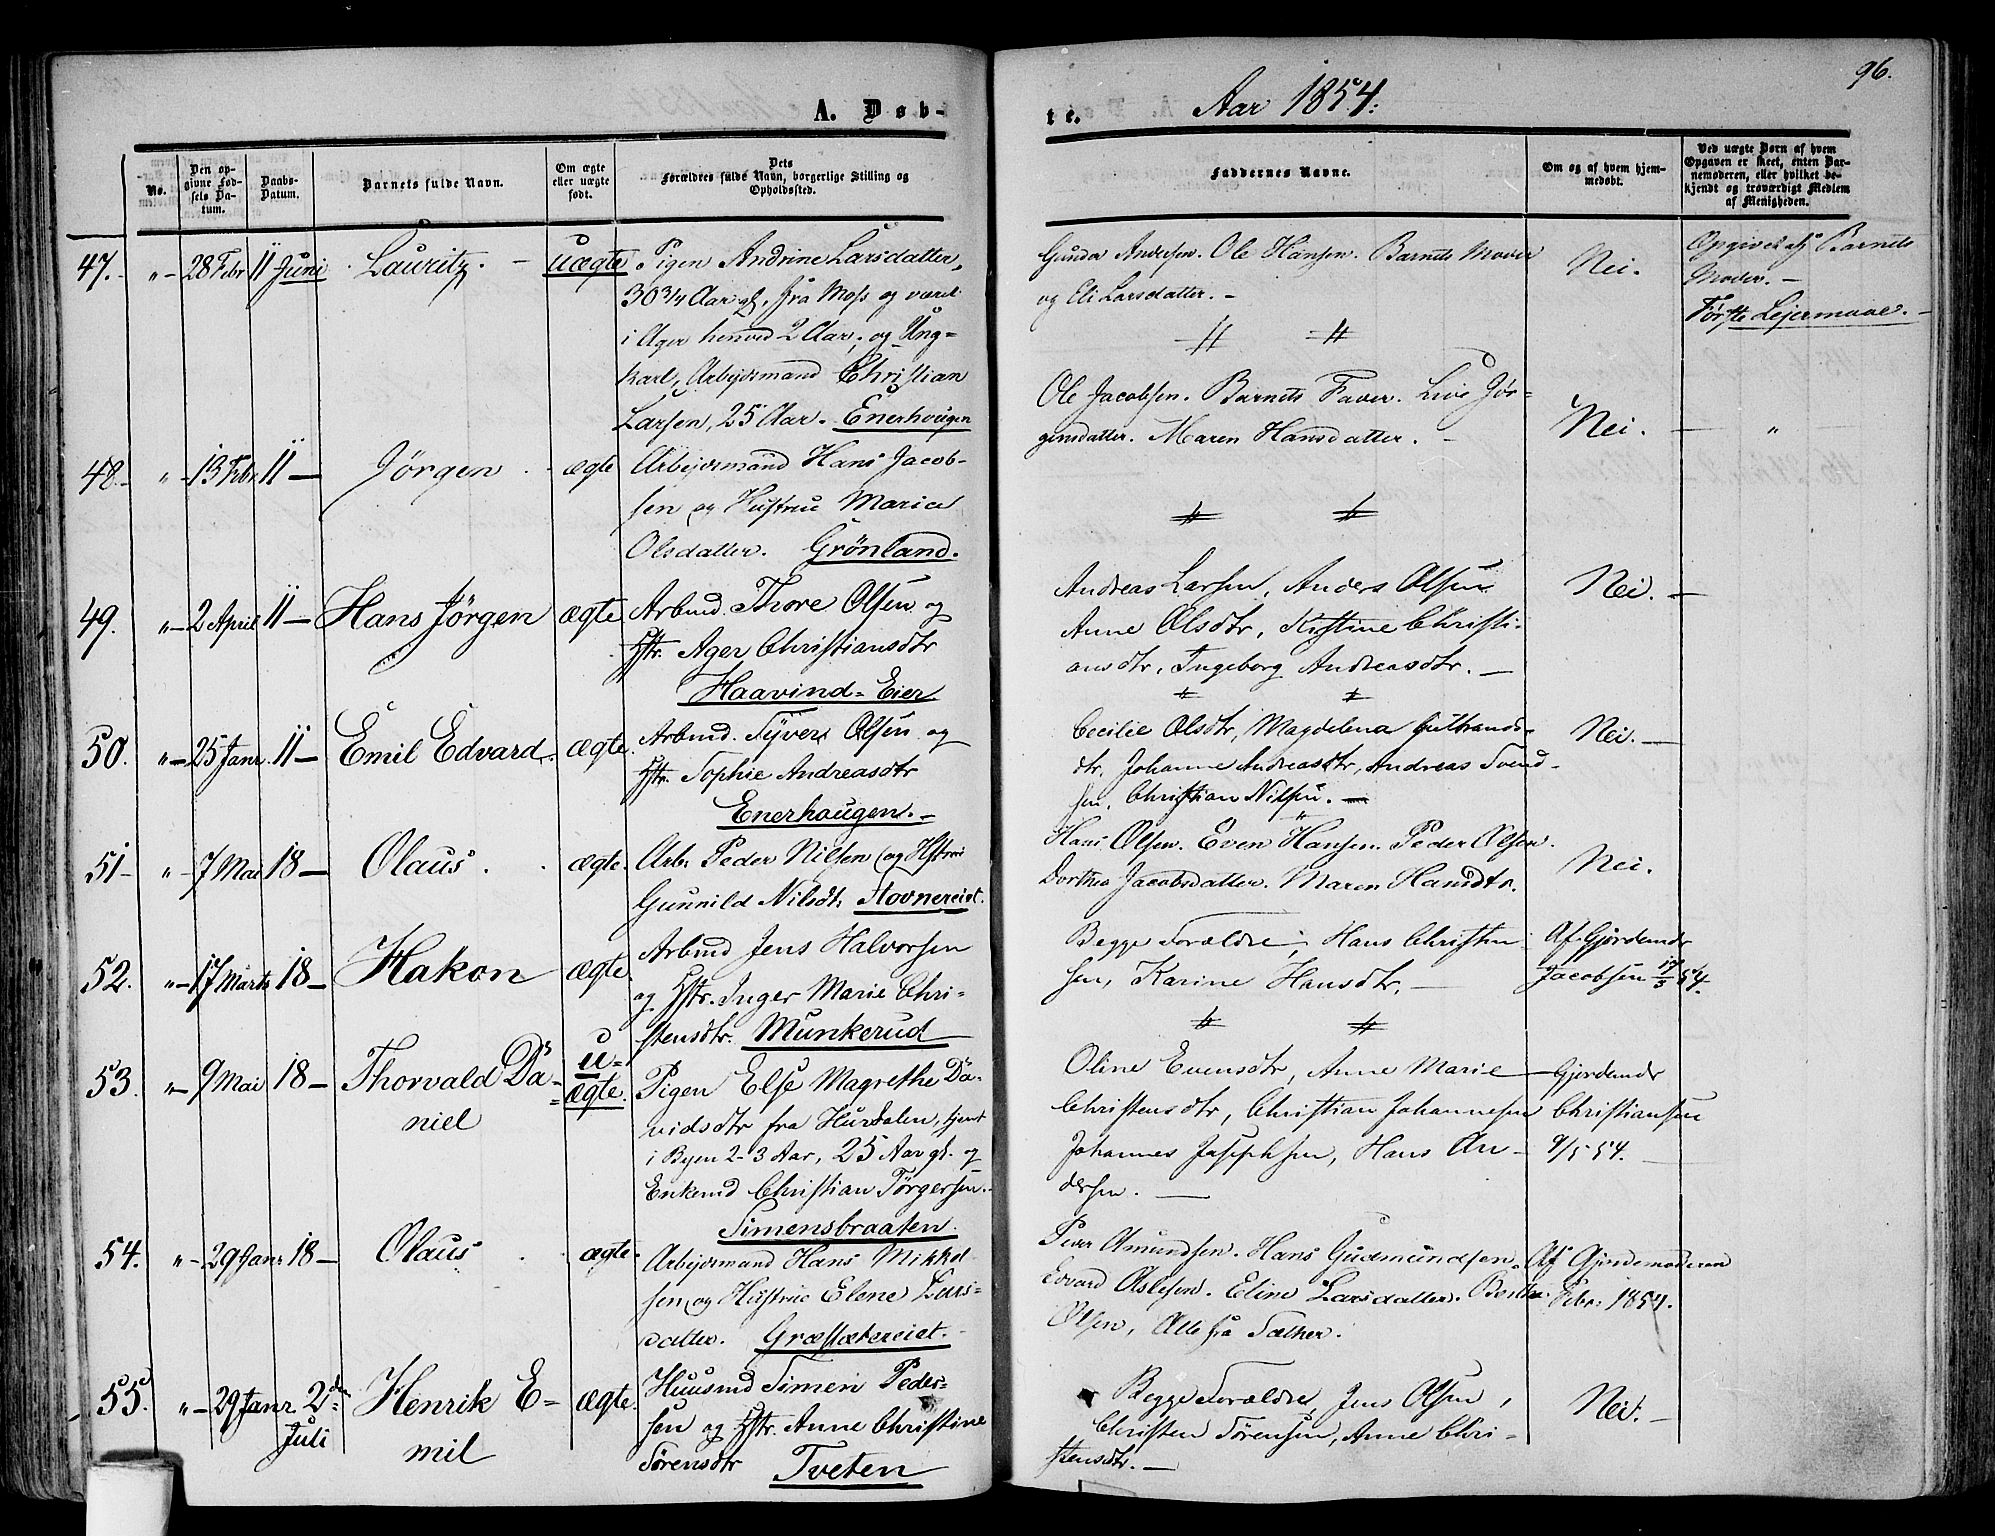 96.
A. Døb-
te.
Aar 1854.
No.
Den opgivne Fødsels Datum.
Daabs-Datum.
Barnets fulde Navn.
Om ægte eller uægte født.
Dets Forældres fulde Navn, borgerlige Stilling og Opholdssted.
Faddernes Navne.
Om og af hvem hjemmedøbt.
Ved uægte Børn af hvem Opgaven er skeet, enten Barnemoderen, eller hvilket bekjendt og troværdigt Medlem af Menigheden.
47. „ 28 Febr 11 Juni Lauritz. uægte
Pigen Andrine Larsdatter,
30 3/4 Aar gl. fra Moss og været
i Ager henved 2 Aar; og Ung-
karl, Arbejdsmand Christian
Larsen, 25 Aar. Enerhougen
Gunder Andersen. Ole Hansen. Barnets Moder
og Eli Larsdatter. –
Nei.
Opgivet af Barnets
Moder. –
Første Lejermaal. –
48. „ 13 Febr 11 – Jørgen ægte
Arbejdsmand Hans Jacob-
sen og Hustrue Maria
Olsdatter. Grönland.
Ole Jacobsen. Barnets Fader. Live Jør-
gensdatter. Maren Hansdatter. –
Nei. – „
49. „ 2 April 11 – Hans Jörgen ægte
Arbmd. Thore Olsen og
Hstr. Ager Christiansdtr
Haavind-Eier
Andreas Larsen, Anders Olsen
Anne Olsdtr, Kistine Christi-
ansdtr, Ingeborg Andreasdtr. –
Nei. –
50. „ 25 Janr. 11 – Emil Edvard. ægte.
Arbmd. Syvers Olsen og
Hstr. Sophie Andreasdtr
Enerhaugen. –
Cecilie Olsdtr, Magdelena Gulbrands-
dtr. Johanne Andreasdtr, Andreas Svend-
sen. Christian Nilsen. –
Nei. –
51 „ 7 Mai 18 – Olaus. ægte.
Arbr Peder Nilsen og Hstrue
Gunnild Nilsdt. Stovnereiet.
Hans Olsen. Even Hansen. Peder Olsen.
Dorthea Jacobsdatter. Maren Hansdtr.
Nei.
52. „ 17 Marts 18 – Hakon ægte.
Arbmd Jens Halvorsen
og Hstr. Inger Marie Chri-
stensdtr. Munkerud
Begge Forældre, Hans Christen
sen, Karine Hansdtr. –
Af Gjordemdr
Jacobsen 17/3 54.
53. „ 9 Mai 18 – Thorvald Da-
niel
u-
ægte.
Pigen Else Magrethe Da-
vidsdtr fra Hurdalen, tjent
i Byen 2-3 Aar, 25 Aar gl. og
Enkemd Christian Törgersen.
Simensbraaten.
Oline Evensdtr, Anne Marie
Christensdtr, Christian Johannesen
Johannes Josephsen, Hans An-
dersen. –
Gjordemdr
Christiansen
9/5 54.
54. „ 29 Janr 18 – Olaus ægte.
Arbejdsmand Hans Mikkel
sen og Hustrue Elene Lars-
datter. Græsletereiet.
Peder Amundsen. Hans Gudmundsen.
Edvard Oslesen. Eline Larsdatter.
Olsen, Alle fra Sæther.
Af Gjordemoderen
Febr. 1854.
55. „ 29 Janr 2den
Juli
Henrik E-
mil
ægte.
Huusmd Simen Peder-
sen og Hstr. Anne Christine
Sörensdtr Tveten
Begge Forældre, Jens Olsen,
Christen Sörensen, Anne Chri-
stensdtr. –
Nei. –